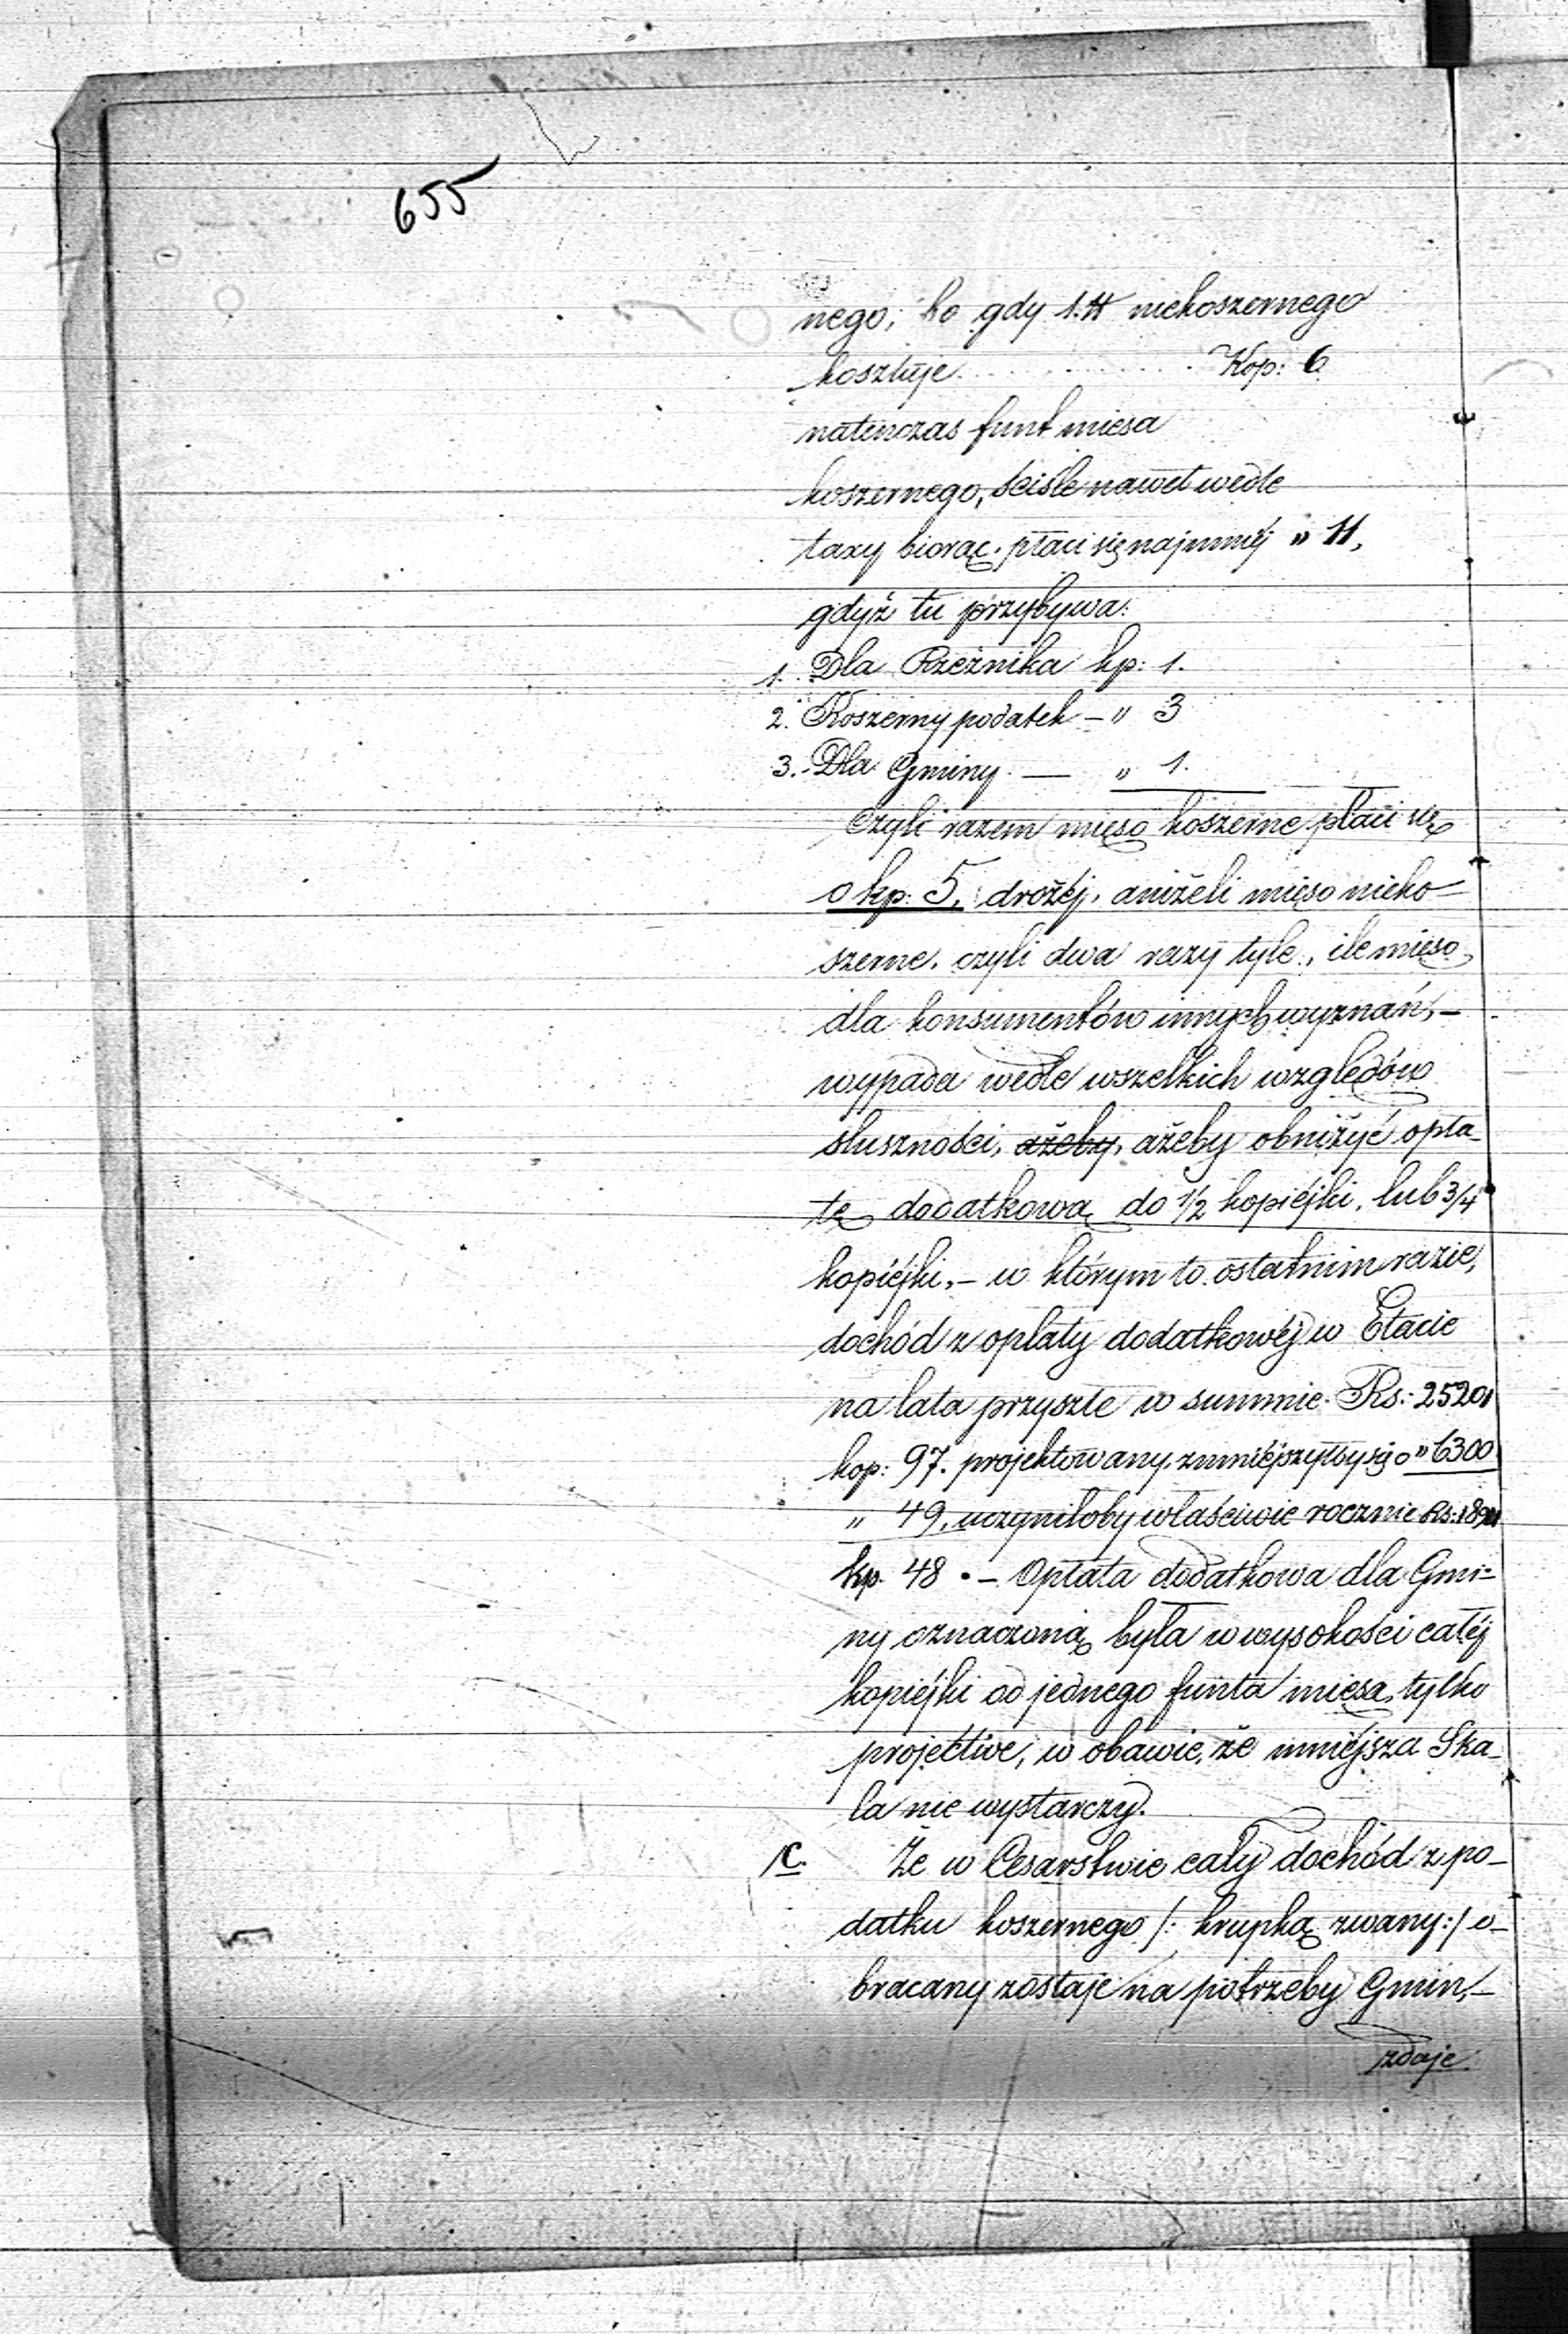 655
nego; bo gdy 1. ℔ niekoszernego
kosztuje . . . . . . . . Kop: 6
natenczas funt mięsa
koszernego, ściśle nawet wedle
taxy biorąc, płaci się najmniéj „ 11,
gdyż tu przybywa:
1. Dla Rzeźnika kp: 1.
2. Koszerny podatek – „ 3
3. Dla Gminy — „ 1.
Czyli razem mięso koszerne płaci się
o kp. 5, drożéj, aniżeli mięso nieko-
szerne, czyli dwa razy tyle, ile mięso
dla konsumentów innych wyznań, –
wypada wedle wszelkich względów
słuszności, ażeby, ażeby obniżyć opła-
tę dodatkową do 1/2 kopiéjki, lub 3/4
kopiéjki, – w którym to ostatnim razie,
dochód z opłaty dodatkowéj w Etacie
na lata przyszłe w summie Rs: 2520
kop: 97. projektowany, zmniéjszyłby się o „ 6300
„ 49, uczyniłoby właściwie rocznie Rs:
kp. 48 . – Opłata dodatkowa dla Gmi-
ny oznaczoną była w wysokości całéj
kopiéjki od jednego funta mięsa, tylko
projective, w obawie, że mniéjsza Ska-
la nie wystarczy.
C. Że w Cesarstwie cały dochód z po-
datku koszernego /: krupką zwany :/ o-
bracany zostaje na potrzeby Gmin, –
zdaje